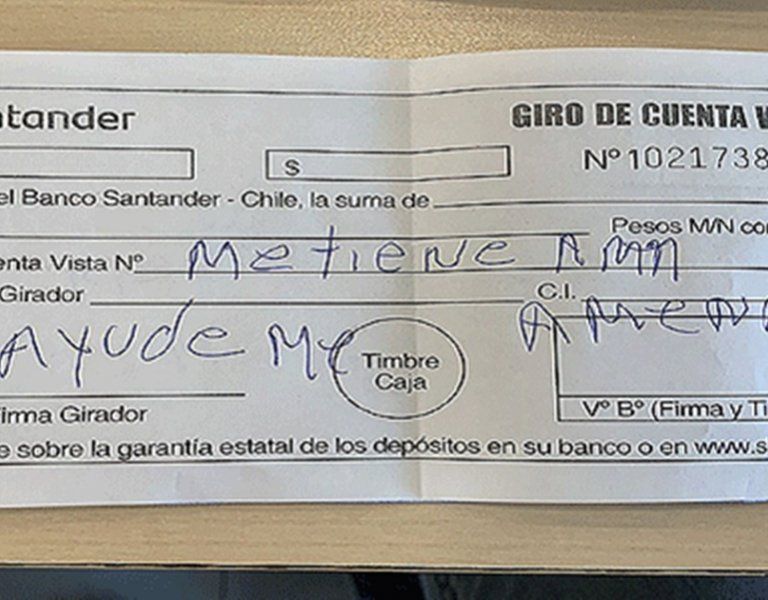 ntander GIRO DE CUENTA V
$ Nº 1021738
el Banco Santander - Chile, la suma de
Pesos M/N co
enta Vista Nº Metiene Amn
Girador C.I. Amen
Ayudeme Timbre Caja
irma Girador Vº Bº (Firma y Ti
e sobre la garantía estatal de los depósitos en su banco o en www.s